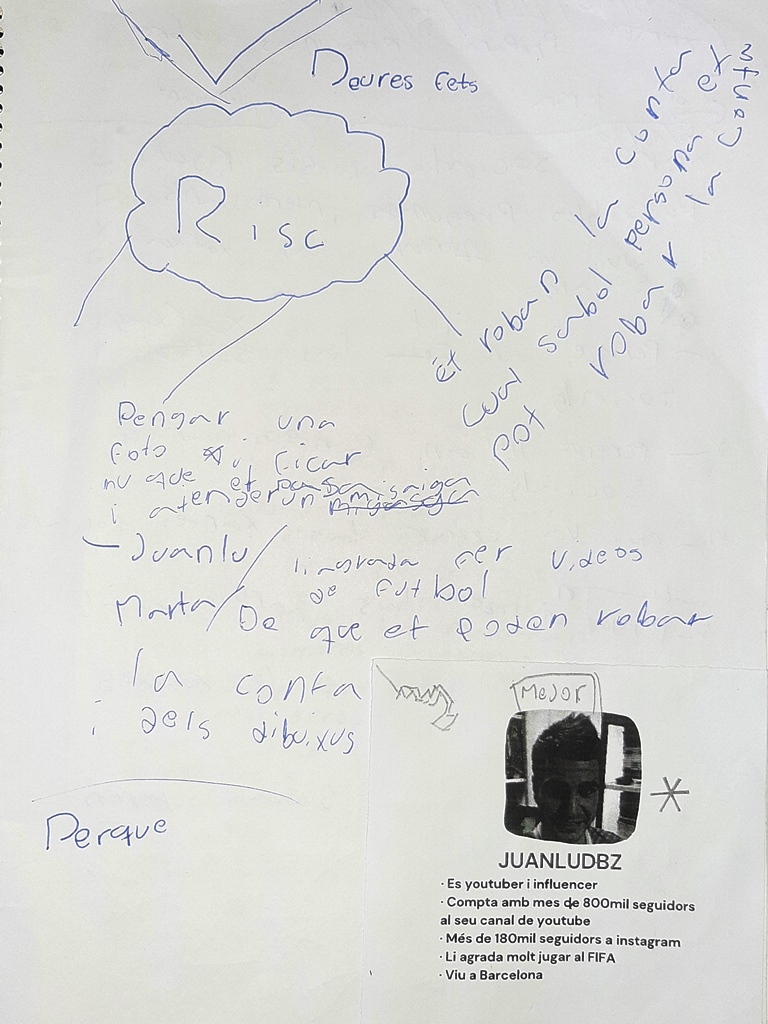 Deures fets
Risc
Et roban la conta
cual sabol persona et
pot robar la conta
Pengar una
foto i ficar
nu que et pasa
i atenderun amisaiga
Juanlu / li agrada fer videos
de futbol
Marta / De que et poden robar
la conta
i dels dibuixus
Perque
Mejor
JUANLUDBZ
· Es youtuber i influencer
· Compta amb mes de 800mil seguidors
al seu canal de youtube
· Més de 180mil seguidors a instagram
· Li agrada molt jugar al FIFA
· Viu a Barcelona